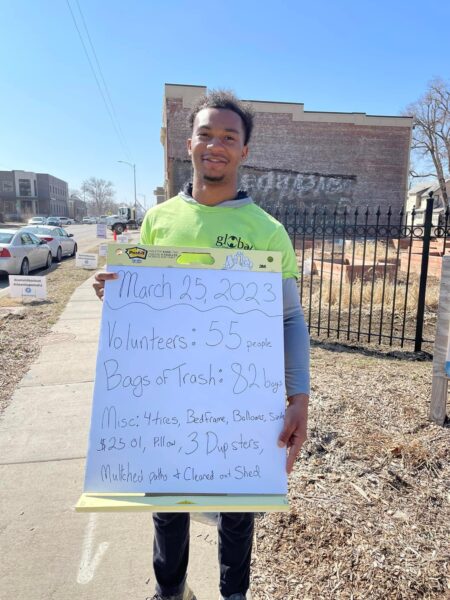 global
Post-it
3M
March 25, 2023
Volunteers: 55 people
Bags of Trash: 82 bags
Misc: 4 tires, Bedframe, Balloons,
$25.01, Pillow, 3 Dupsters,
Multched paths & Cleared out Shed